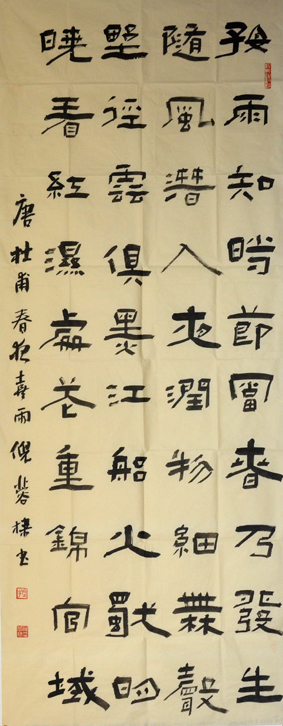 好雨知時節當春乃發生
隨風潛入夜潤物細無聲
野徑雲俱黑江船火獨明
曉看紅濕處花重錦官城
唐杜甫春夜喜雨倪